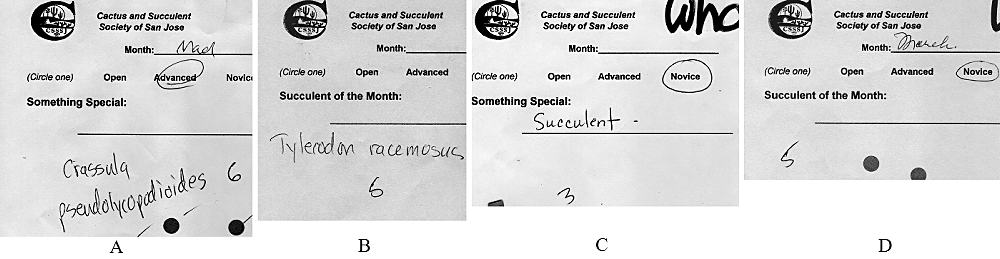 Cactus and Succulent
Society of San Jose
CSSSJ
Month:
(Circle one) Open Advanced Novic
Something Special:
Crassula
pseudolycopodioides 6
A
Cactus and Succulent
Society of San Jose
CSSSJ
Month:
(Circle one) Open Advanced
Succulent of the Month:
Tylecodon racemosus
6
B
Who
Cactus and Succulent
Society of San Jose
CSSSJ
Month:
(Circle one) Open Advanced Novice
Something Special:
Succulent -
3
C
Cactus and Succulent
Society of San Jose
CSSSJ
Month: March.
(Circle one) Open Advanced Novice
Succulent of the Month:
5
D